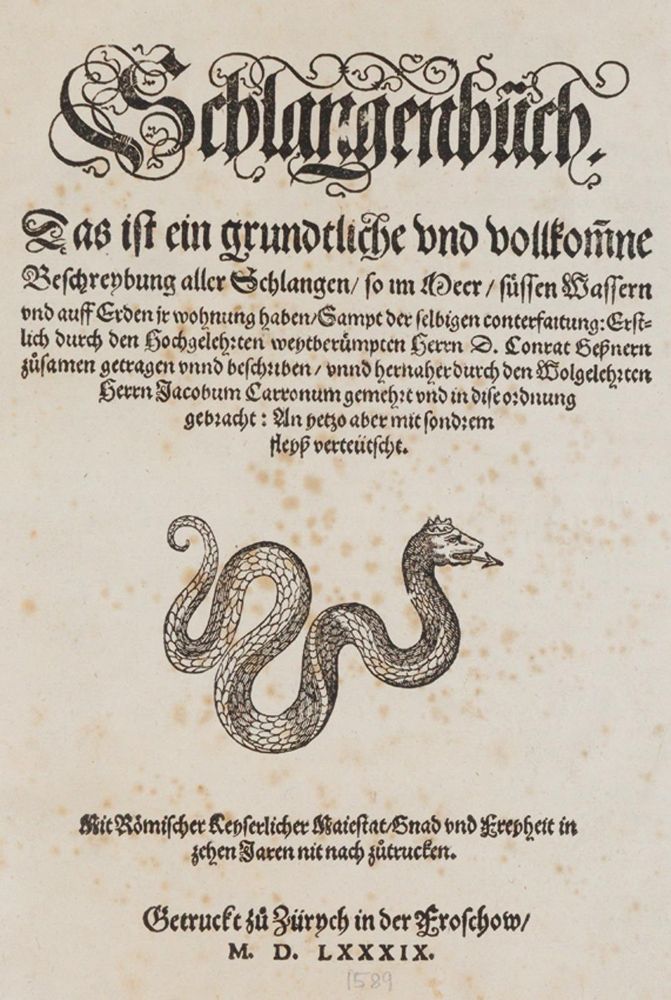 Schlangenbuͦch.
Das ist ein grundtliche vnd vollkom̃ne
Beschreybung aller Schlangen/ so im Meer/ süssen Wassern
vnd auff Erden jr wohnung haben/ Sampt der selbigen conterfaitung: Erst-
lich durch den Hochgelehrten weytberümpten Herrn D. Conrat Geßnern
zuͦsamen getragen vnnd beschriben/ vnnd hernaher durch den Wolgelehrten
Herrn Jacobum Carronum gemehrt vnd in dise ordnung
gebracht: An yetzo aber mit sondrem
fleyß verteütscht.
Mit Römischer Keyserlicher Maiestat/ Gnad vnd Freyheit in
zehen Jaren nit nach zuͦtrucken.
Getruckt zuͦ Zürych in der Froschow/
M. D. LXXXIX.
1589